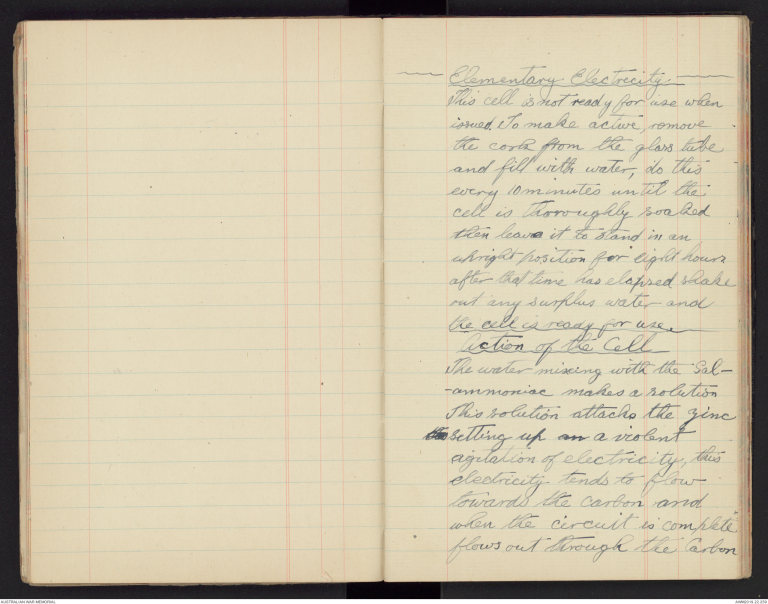 Elementary Electrecity.
This cell is not ready for use when
issued. To make active, remove
the cork from the glass tube
and fill with water, do this
every 10 minutes until the
cell is thoroughly soaked
then leave it to stand in an
upright position for eight hours
after that time has elapsed shake
out any surplus water and
the cell is ready for use.
Action of the Cell
The water mixing with the Sal-
-ammoniac makes a solution
This solution attacks the zinc
setting up a violent
agitation of electricity, this
electricity tends to flow
towards the carbon and
when the circuit is complete
flows out through the Carbon
AUSTRALIAN WAR MEMORIAL